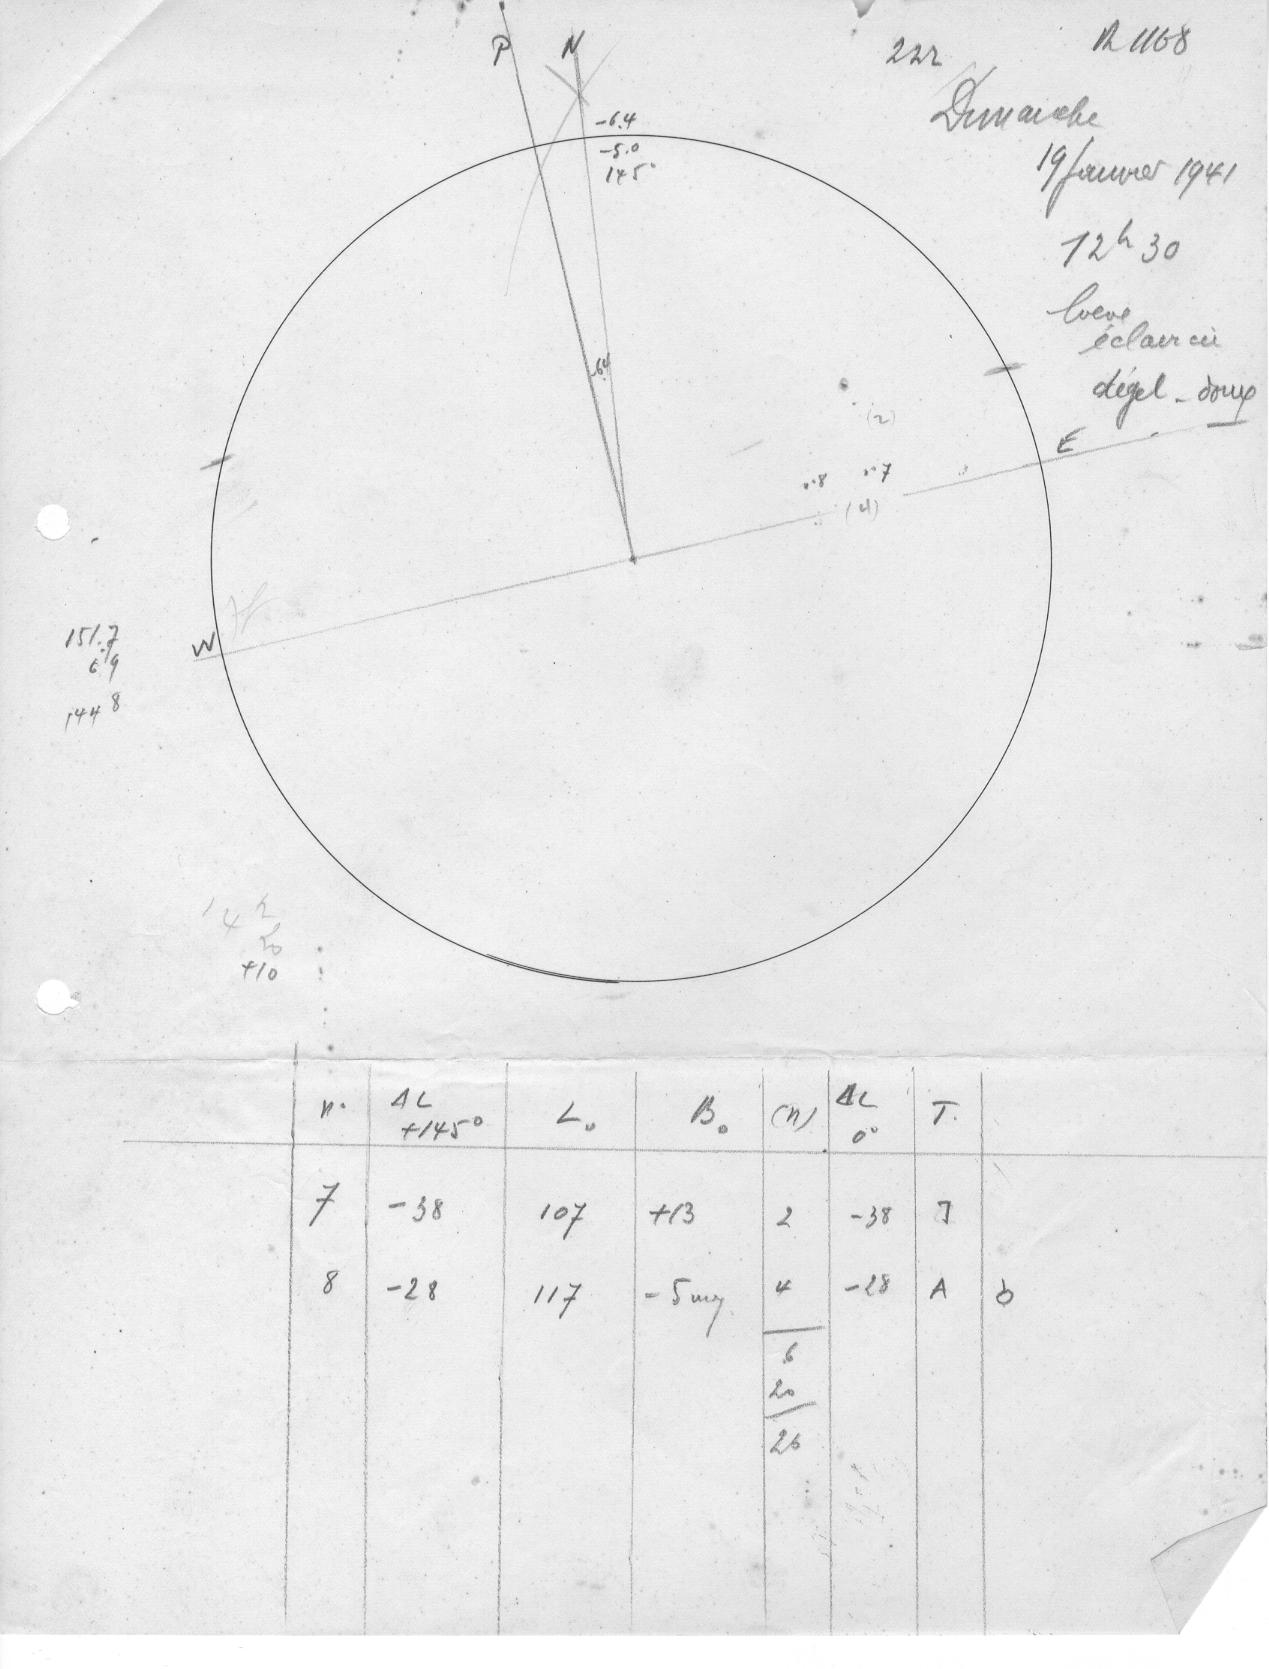 P N
222
R 1168
Dimanche
19 Janvier 1941
12h 30
brève
éclaircie
dégel - doux
-6.4
-5.0
145°
-6.4
(2)
8 7
(4)
E
W
151.7
6.9
144 8
+10
n. ΔL +145° L. B. (n) ΔL 0° T.
7 -38 107 +13 2 -38 J
8 -28 117 -5 4 -28 A b
6
20
26